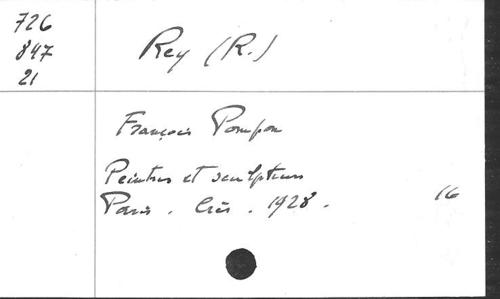 726
847
21
Rey (R.)
François Pompon
Peintres et sculpteurs
Paris. Crès. 1928.
16